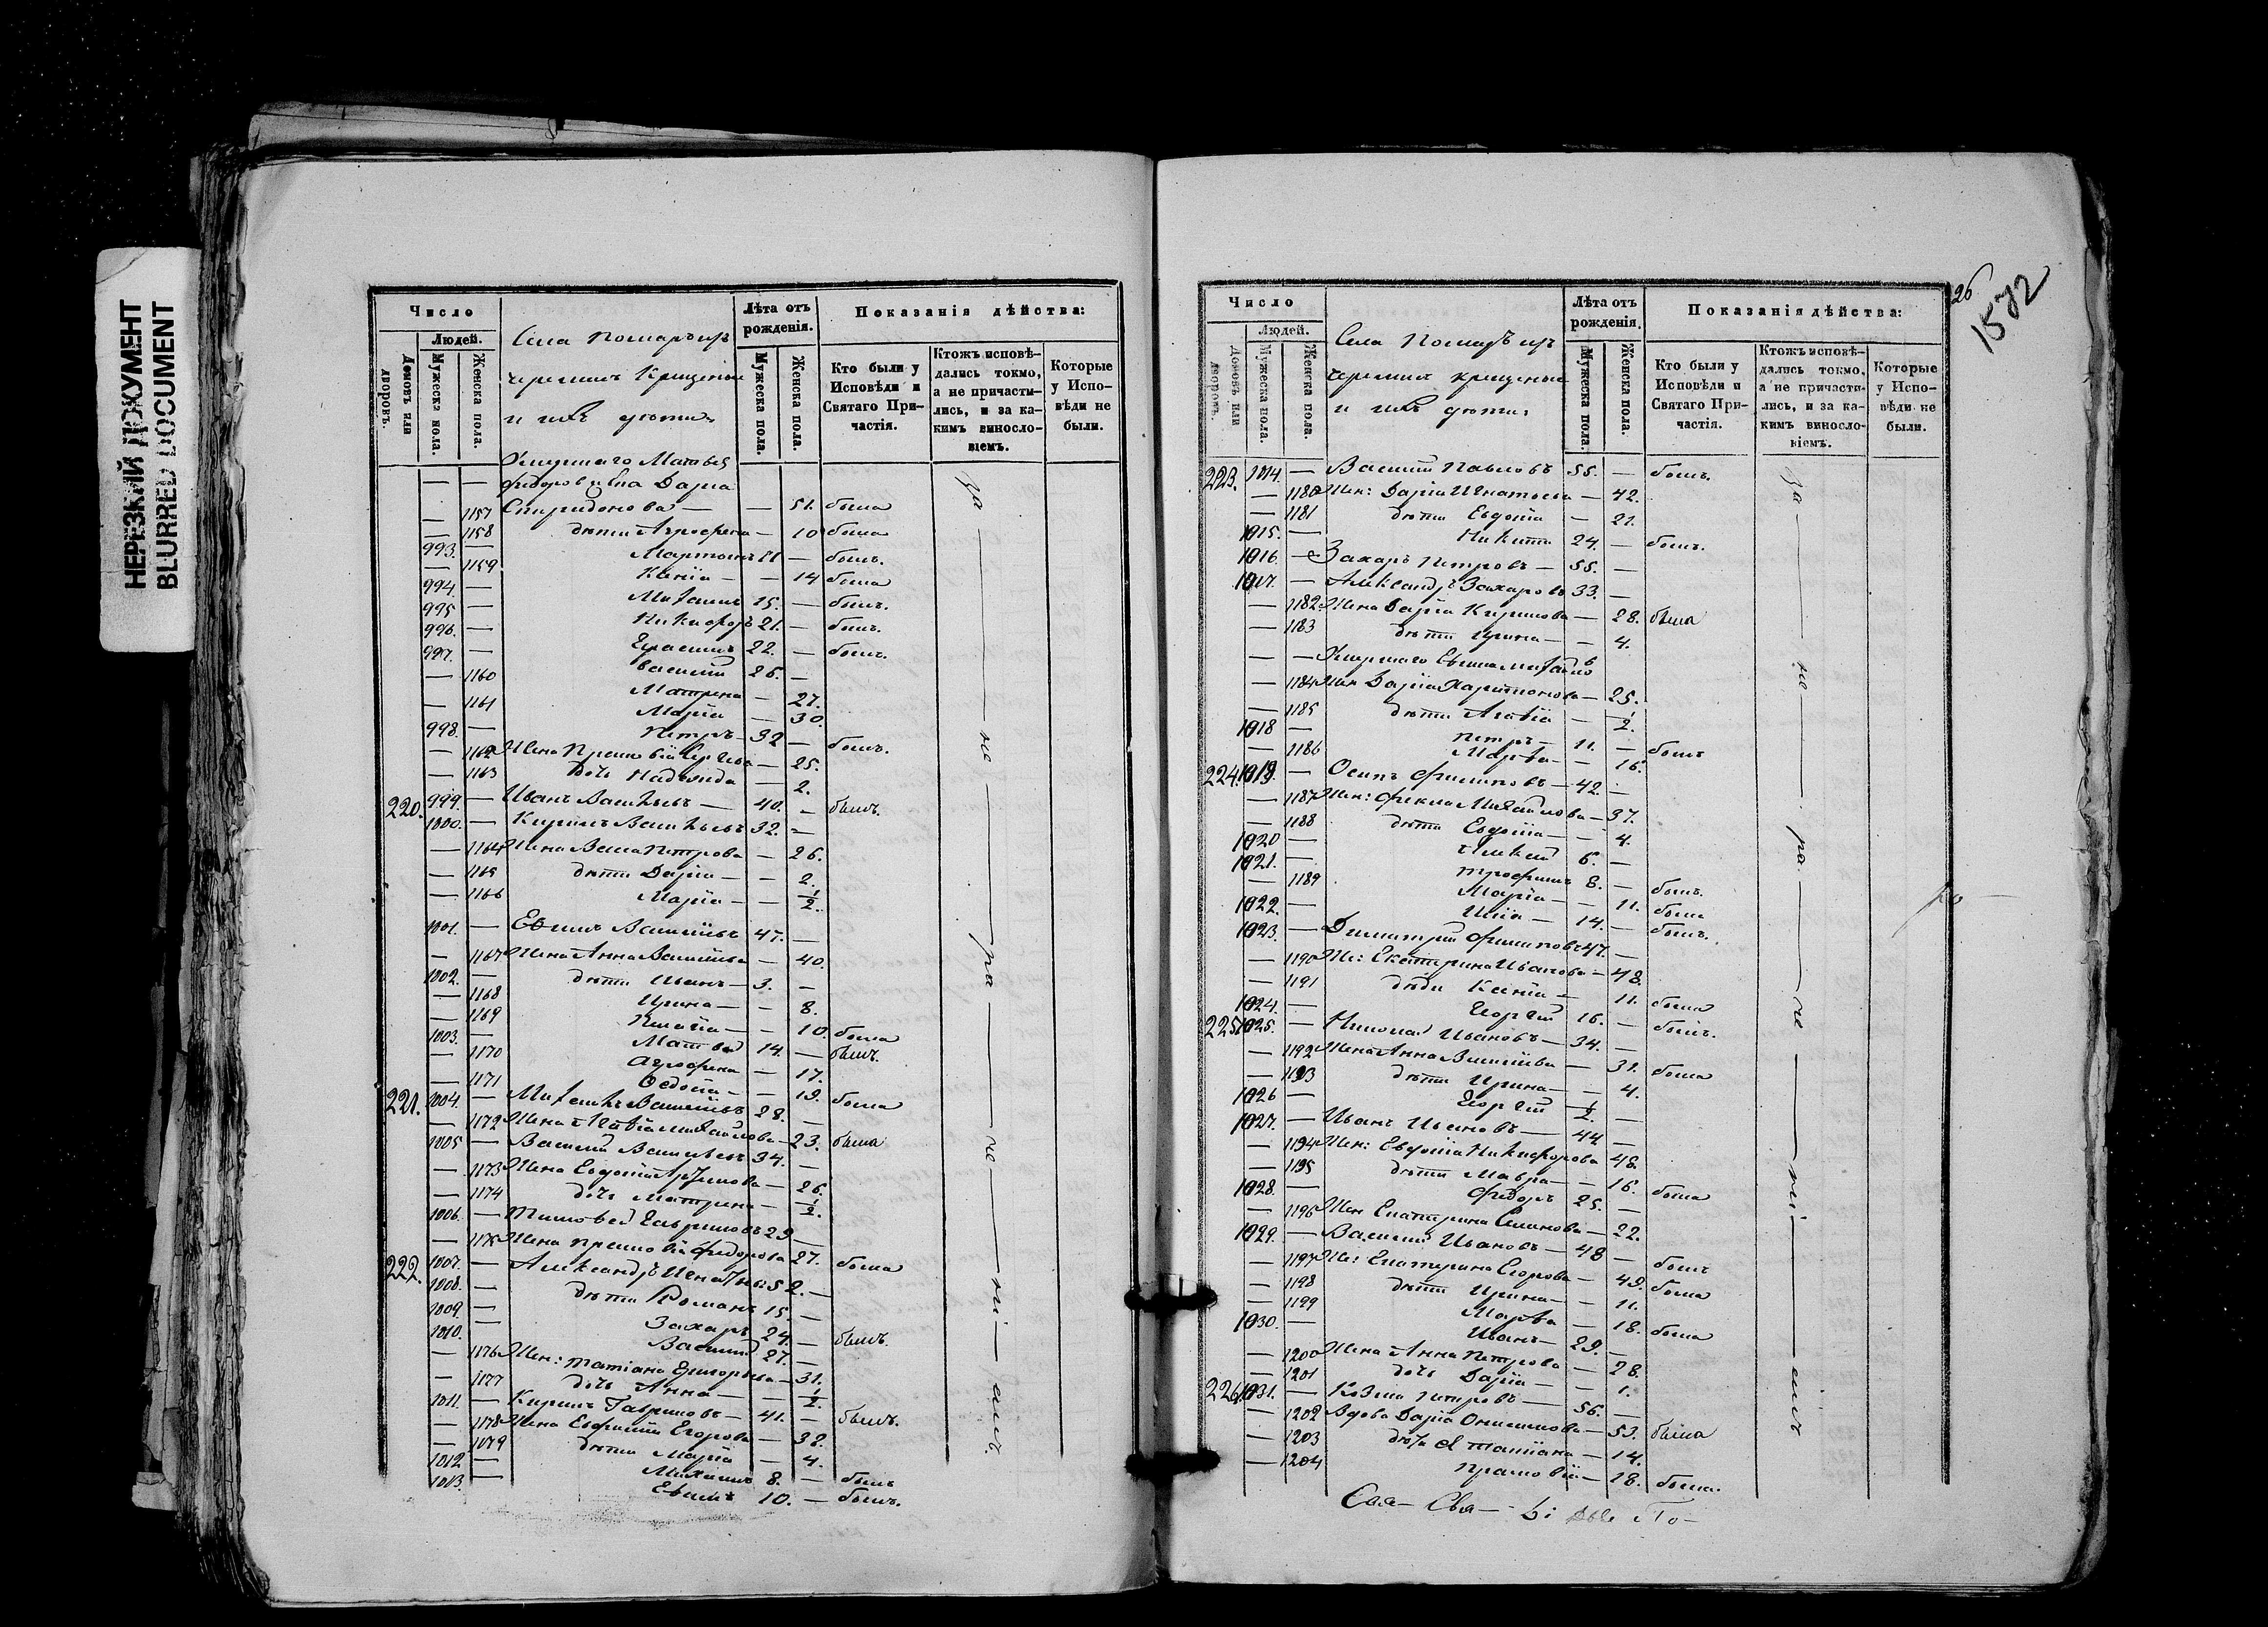 НЕРЕЗКИЙ ДОКУМЕНТ
BLURRED DOCUMENT
Число
Людей.
Домовъ или дворовъ.
Мужеска пола.
Женска пола.
Села
черемисъ крещеные
и ихъ дѣти
Лѣта отъ рожденія.
Мужеска пола.
Женска пола.
Показанія дѣйства:
Кто были у Исповѣди и Святаго Причастія.
Ктожъ исповѣдались токмо, а не причастились, и за какимъ винословіемъ.
Которые у Исповѣди не были.
Умершаго Матвѣя
— — Федорова жена Дарья
— 1157 Спиридонова — — 51. была
— 1158 дѣти Агрофена — 10 была
993. — Мартынъ 11 — былъ.
— 1159 Ксенія — — 14 была
994. — 15. — былъ.
995 — Никифоръ 21. — былъ.
996. — Герасимъ 22. — былъ.
997. — Василій 26. —
— 1160 Матрена — 27.
— 1161 Марія — 30.
998. — Петръ — 32 — былъ.
— 1162 Жена Прасковія Сергѣева — 25.
— 1163 дочь Надежда — 2.
220. 999. — Иванъ Васильевъ — 40. — былъ.
1000. — Кирилъ Васильевъ 32. —
— 1164 Жена Петрова — 26.
— 1165 дѣти Дарія — — 2.
— 1166 Марія — — 1/2.
1001. — Евсимъ Васильевъ 47. —
— 1167 Жена Анна Васильева — 40.
1002. — дѣти Иванъ — 3. —
— 1168 Ирина — — 8.
— 1169 Пелагія — — 10. была
1003. — Матвей 14. — былъ.
— 1170 Агрофена — 17.
— 1171 Федосія — — 19. была
221. 1004. — Васильевъ 28. —
— 1172 Жена Михайлова — 23. была
1005 — Василій Васильевъ 34. —
— 1173 Жена Евдокія — 26.
— 1174 дочь Матрена — 1/2.
1006. — Тимофей Гавриловъ 29 —
— 1175 Жена Прасковія Федорова 27. была
222. 1007. — Александръ Игнатьевъ 52. —
1008. — дѣти Романъ 15. —
1009. — Захаръ 24. — былъ.
1010. — Василій 27. —
— 1176 Жен: Татіана Григорьева — 31.
— 1177 дочь Анна — — 1/2.
1011. — Кирилъ Гавриловъ — 41. — былъ.
— 1178 Жена Егорова — 38.
— 1179 дѣти Марія — 4.
1012 — Михаилъ 8. — былъ
1013. — Евсимъ 10. — былъ.
26
1572
Число
Людей.
Домовъ или дворовъ.
Мужеска пола.
Женска пола.
Села
черемисъ крещеные
и ихъ дѣти
Лѣта отъ рожденія.
Мужеска пола.
Женска пола.
Показанія дѣйства:
Кто были у Исповѣди и Святаго Причастія.
Ктожъ исповѣдались токмо, а не причастились, и за какимъ винословіемъ.
Которые у Исповѣди не были.
223. 1014. — Василій Павловъ 55. — былъ.
— 1180 Жен: Дарія Игнатьева — 42.
— 1181 дѣти Евдокія — 21.
1015. — Никита 24. — былъ.
1016. — Захаръ Петровъ — 55. —
1017. — Александръ Захаровъ 33. —
— 1182 Жена Дарія Кирилова — 28. была
— 1183 дѣти Ирина — — 4.
— — Умершаго
— 1184 Жен Дарія Харитонова — 25.
— 1185 дѣти Агафія — 1/2.
1018 — Петръ — 11. — былъ
— 1186 Марфа — — 16.
224. 1019. — Осипъ Филиповъ — 42. —
— 1187 Жен: Фекла Михайлова — 37.
— 1188 дѣти Евдокія — — 4.
1020 — Алексей 6. —
1021. — Трофимъ 8. — былъ.
— 1189 Марія — — 11. была
1022. — Илія — 14. — былъ.
1023. — Димитрій Филиповъ 47. —
— 1190 Же: Екатерина Иванова — 48.
— 1191 дѣти Ксенія — 11. была
1024. — Георгій 16. — былъ.
225. 1025. — Николай Ивановъ — 34. —
— 1192 Жена Анна Васильева — 31. была
— 1193 дѣти Ирина — — 4.
1026 — Георгій 1/2. —
1027. — Иванъ Ивановъ — 44 —
— 1194 Жен: Евдокія Никифорова 48.
— 1195 дѣти Мавра — — 16. была
1028. — Федоръ 25. —
— 1196 Жен Екатерина — 22.
1029. — Василій Ивановъ — 48 — былъ
— 1197 Же: Екатерина Егорова — 49. была
— 1198 дѣти Ирина — — 11.
— 1199 Марфа — 18. была
1030. — Иванъ — 29. —
— 1200 Жена Анна Петрова — 28.
— 1201 дочь Дарія — — 1.
226. 1031. — Козма Петровъ — 56. —
— 1202 Вдова Дарія Онисимова — 53. была
— 1203 Татіана — 14.
— 1204 Прасковія — 18. была.